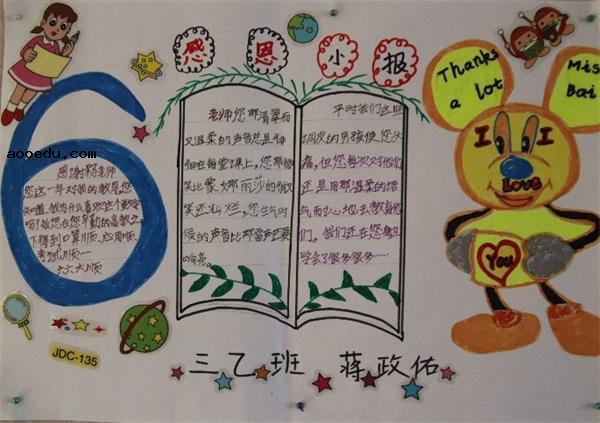 感恩小报
Thanks
a lot
Mis
Bai
I I
Love
You
aooedu.com
感谢杨老师
您这一年对我的教导,您
知道我为什么喜欢这个数字
吗?被您在您辛勤的高教之
下得到口算顺、应用顺
考试顺
六六大顺
老师您那清翠而
又温柔的声音总是伴
但在每堂课上,您那微
笑比蒙娜丽莎的微
笑还灿烂,您生气时
候的声音比那雷声还要
响亮。
平时我们这些
调皮的男孩使您头
痛,但您每次对他们
还是用那温柔的语
气耐心地去教育他
们。我们还在您身边
学会了很多很多……
JDC-135
三乙班 蒋政佑